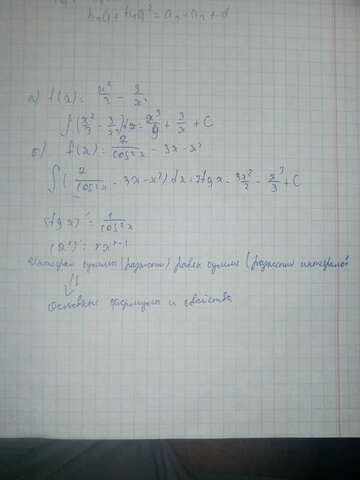 b₁q + b₁q² = a₁ + a₁ + d
а) f(x) = x²/3 - 3/x²
∫(x²/3 - 3/x²)dx = x³/9 + 3/x + C
б) f(x) = 2/cos²x - 3x - x²
∫(2/cos²x - 3x - x²)dx = 2tgx - 3x²/2 - x³/3 + C
(tgx)' = 1/cos²x
(xⁿ)' = nxⁿ⁻¹
Интеграл суммы (разности) равен сумме (разности интегралов
⇓
Основные формулы и свойства